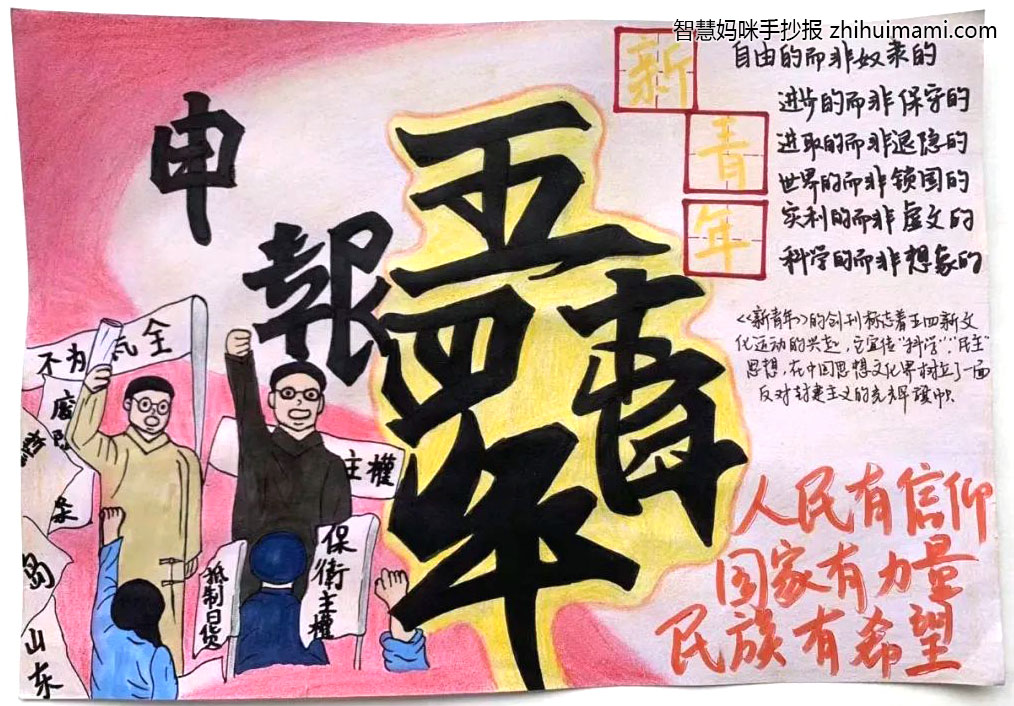 智慧妈咪手抄报 zhihuimami.com
申報
五四青年
新青年
自由的而非奴隶的
进步的而非保守的
进取的而非退隐的
世界的而非锁国的
实利的而非虚文的
科学的而非想象的
《新青年》的创刊标志着五四新文
化运动的兴起，它宣传“科学”、“民主”
思想，在中国思想文化界树立了一面
反对封建主义的光辉旗帜
人民有信仰
国家有力量
民族有希望
不为
全
廢
主權
保衛主權
抵制日货
岛
山东